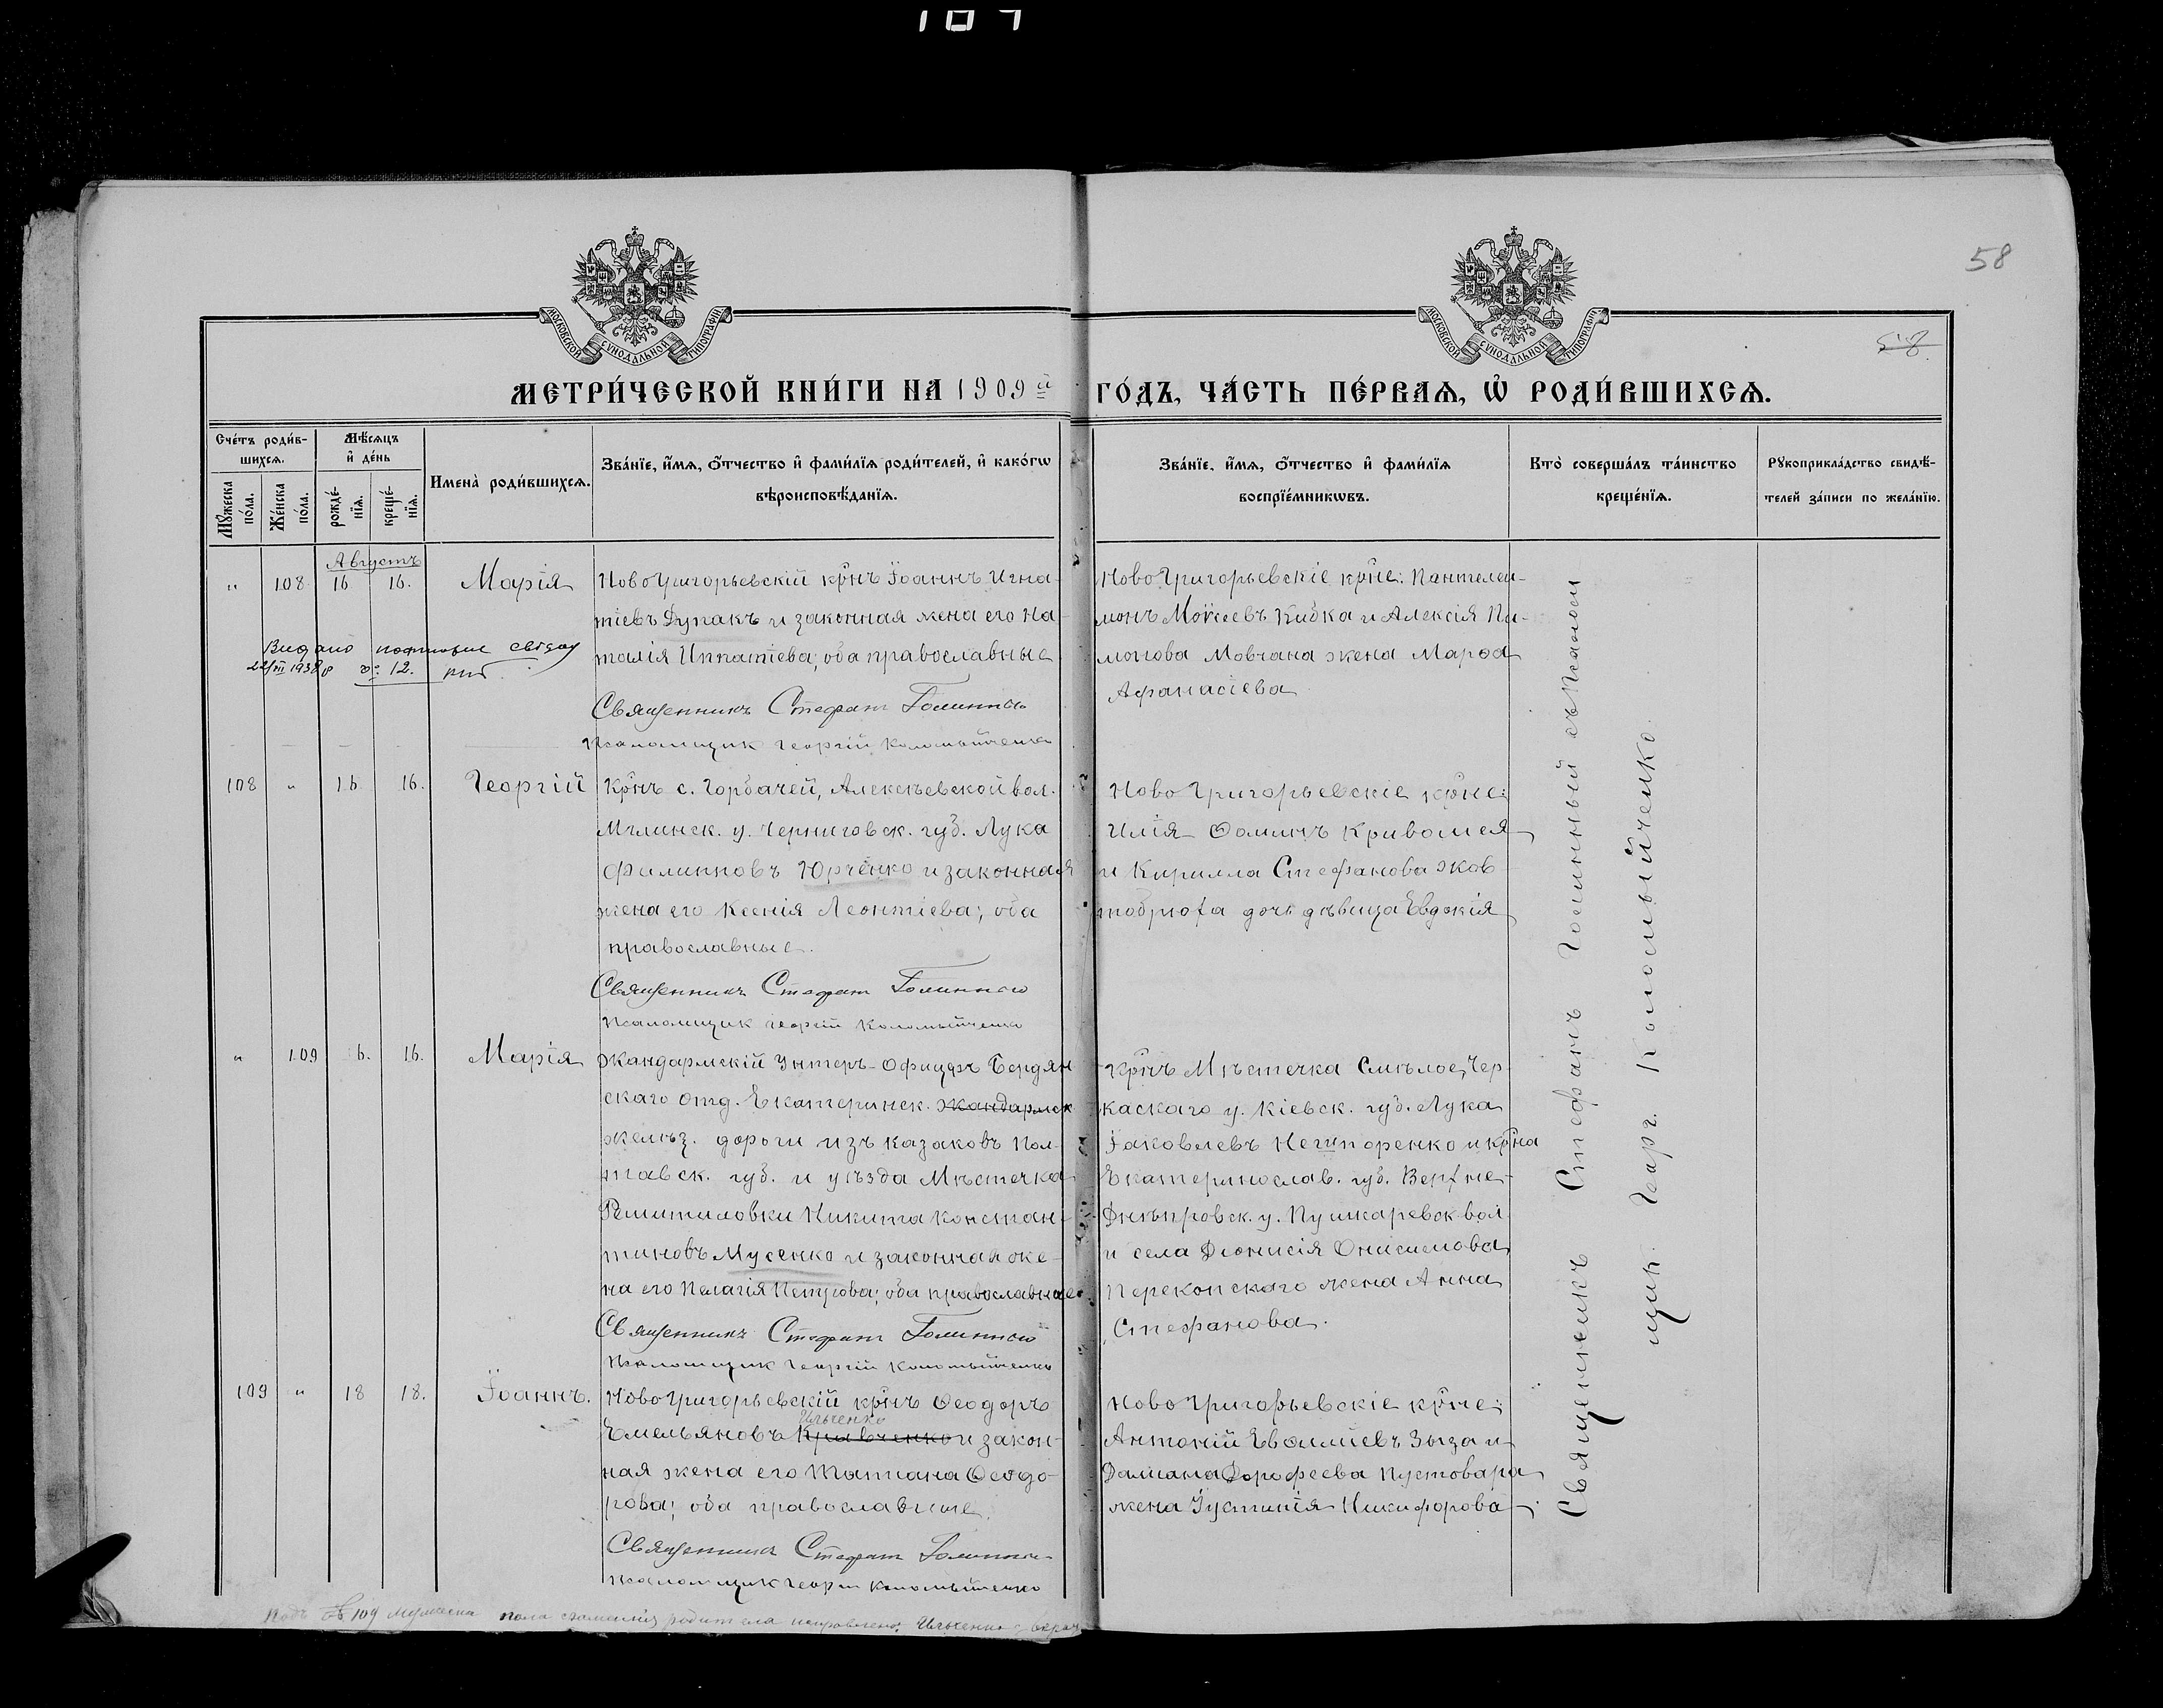 107
58
58.
МОСКОВСКОЙ СѴНОДАЛЬНОЙ ТИПОГРАФІИ
МОСКОВСКОЙ СѴНОДАЛЬНОЙ ТИПОГРАФІИ
МЕТРИ́ЧЕСКОЙ КНИ́ГИ НА 1909й ГО́ДЪ, ЧА́СТЬ ПЕ́РВАѦ, Ѡ҆ РОДИ́ВШИХСѦ.
Сче́тъ роди́в-
шихсѧ.
Мꙋ́жеска по́ла.
Же́нска по́ла.
Мѣ́сѧцъ
и҆ де́нь
рожде́-
нїѧ.
креще́-
нїѧ.
Имена̀ роди́вшихсѧ.
Зва́нїе, и҆́мѧ, ѻ҆́тчество и҆ фами́лїѧ роди́телей, и҆ како́гѡ
вѣроисповѣ́данїѧ.
Зва́нїе, и҆́мѧ, ѻ҆́тчество и҆ фами́лїѧ
воспрїе́мникѡвъ.
Кто̀ соверша́лъ та́инство
креще́нїѧ.
Рꙋкоприкла́дство свидѣ́-
телей за́писи по жела́нїю.
Августъ
" 108 16 16. Марія
НовоГригорьевскій крнъ Іоаннъ Игна-
тіевъ Дупакъ и законная жена его На-
талія Ипатіева; оба православные
Священникъ Стефан Голинный
Псаломщик Георгій Коломыйченко
Видано
22/III 1938р № 12.
НовоГригорьевскіе крне: Пантелеи-
монъ Моѵсеевъ Кибка и Алексія
Мовчана жена Марѳа
Афанасіева
108 " 16 16. Георгій
Крнъ с. Горбачей, Алексѣевской вол.
Мглинск. у. Черниговск. губ. Лука
Филипповъ Юрченко и законная
жена его Ксенія Леонтіева; оба
православные.
Священникъ Стефан Голинный
Псаломщик Георгій Коломыйченко
НовоГригорьевскіе крне:
Илія Ѳоминъ Кривошея
и Кирилла Стефанова Жов
тобрюха дочь дѣвица Евдокія
" 109 16. 16. Марія
Жандармскій Унтеръ-Офицеръ Бердян
скаго Отд. Екатеринск. Жандармск
желѣз. дороги изъ казаковъ Пол-
тавск. губ. и уѣзда Мѣстечка
Решитиловки Никита Констан-
тиновъ Мусенко и законная же-
на его Пелагія Петрова; оба православные
Священникъ Стефан Голинный
Псаломщик Георгій Коломыйченко
Крнъ Мѣстечка Смѣлое, Чер-
каскаго у. Кіевск. губ. Лука
Іаковлевъ Нечипоренко и крна
Екатеринослав. губ. Верхне-
Днѣпровск. у. Пушкаревск вол.
и села Діонисія Онисимова
Перекопскаго жена Анна
Стефанова.
109 " 18 18. Іоаннъ.
НовоГригорьевскій крнъ Ѳеодоръ
Ильченко
Емельяновъ Кравченко и закон-
ная жена его Татіана Ѳеодо-
рова; оба православные.
Священникъ Стефан Голинный
Псаломщик Георгій Коломыйченко
НовоГригорьевскіе крне:
Антоній Зыза и
Даміана Дорофеева Пустовара
жена Іустинія Никифорова
Священникъ Стефанъ Голинный съ Псалом
щик. Георг. Коломыйченко.
109 мужеска пола фамилія родителя исправлено: Ильченко